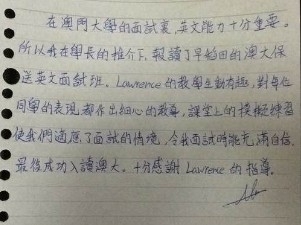 在澳門大學的面試裏,英文能力十分重要。
所以我在學長的推介下,報讀了早始田的澳大保
送英文面試班。Lawrence的教學生動有趣,對每位
同學的表現都作出細心的教導,課堂上的模擬練習
使我們適應了面試的情境,令我面試時能充滿自信,
最後成功入讀澳大。十分感謝Lawrence的指導。